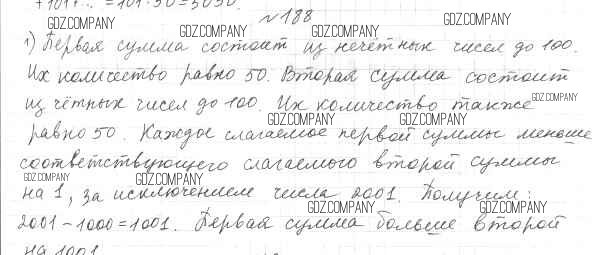 +101+... =101·50=5050.
№188
GDZ.COMPANY GDZ.COMPANY GDZ.COMPANY GDZ.COMPANY
1) Первая сумма состоит из нечётных чисел до 100.
Их количество равно 50. Вторая сумма состоит
из чётных чисел до 100. Их количество также GDZ.COMPANY
GDZ.COMPANY GDZ.COMPANY
равно 50. Каждое слагаемое первой суммы меньше
соответствующего слагаемого второй суммы
GDZ.COMPANY GDZ.COMPANY
на 1, за исключением числа 2001. Получим:
GDZ.COMPANY GDZ.COMPANY
2001-1000=1001. Первая сумма больше второй
на 1001